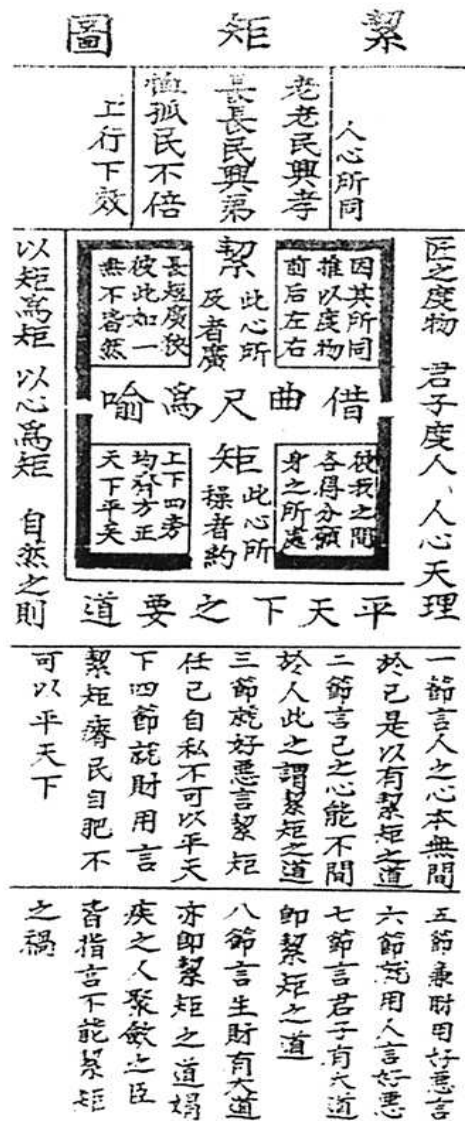 絜矩圖
人心所同
老老民興孝
長長民興弟
恤孤民不倍
上行下效
匠之度物 君子度人、人心天理
因其所同
推以度物
前后左右
絜
此心所
及者廣
長短廣狹
彼此如一
無不皆然
借曲尺為喻
彼我之間
各得分願
身之所處
矩
此心所
操者約
上下四旁
均齊方正
天下平矣
以矩為矩 以心為矩 自然之則
平天下之要道
一節言人之心本無間
於己是以有絜矩之道
二節言己之心能不間
於人此之謂絜矩之道
三節就好惡言絜矩
任己自私不可以平天
下四節就財用言
絜矩瘠民自肥不
可以平天下
五節兼財用好惡言
六節就用人言好惡
七節言君子有大道
即絜矩之道
八節言生財有大道
亦即絜矩之道媢
疾之人聚斂之臣
皆指言不能絜矩
之禍